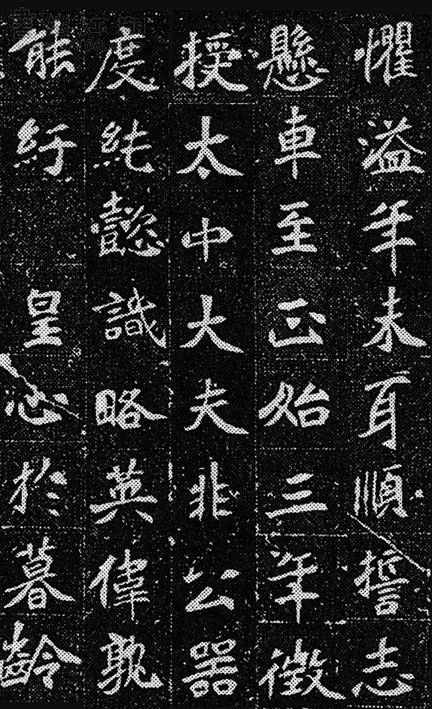 懼溢年未耳順誓志
懸車至正始三年徵
授太中大夫非公器
度純懿識略英偉孰
能紆 皇心於暮齡